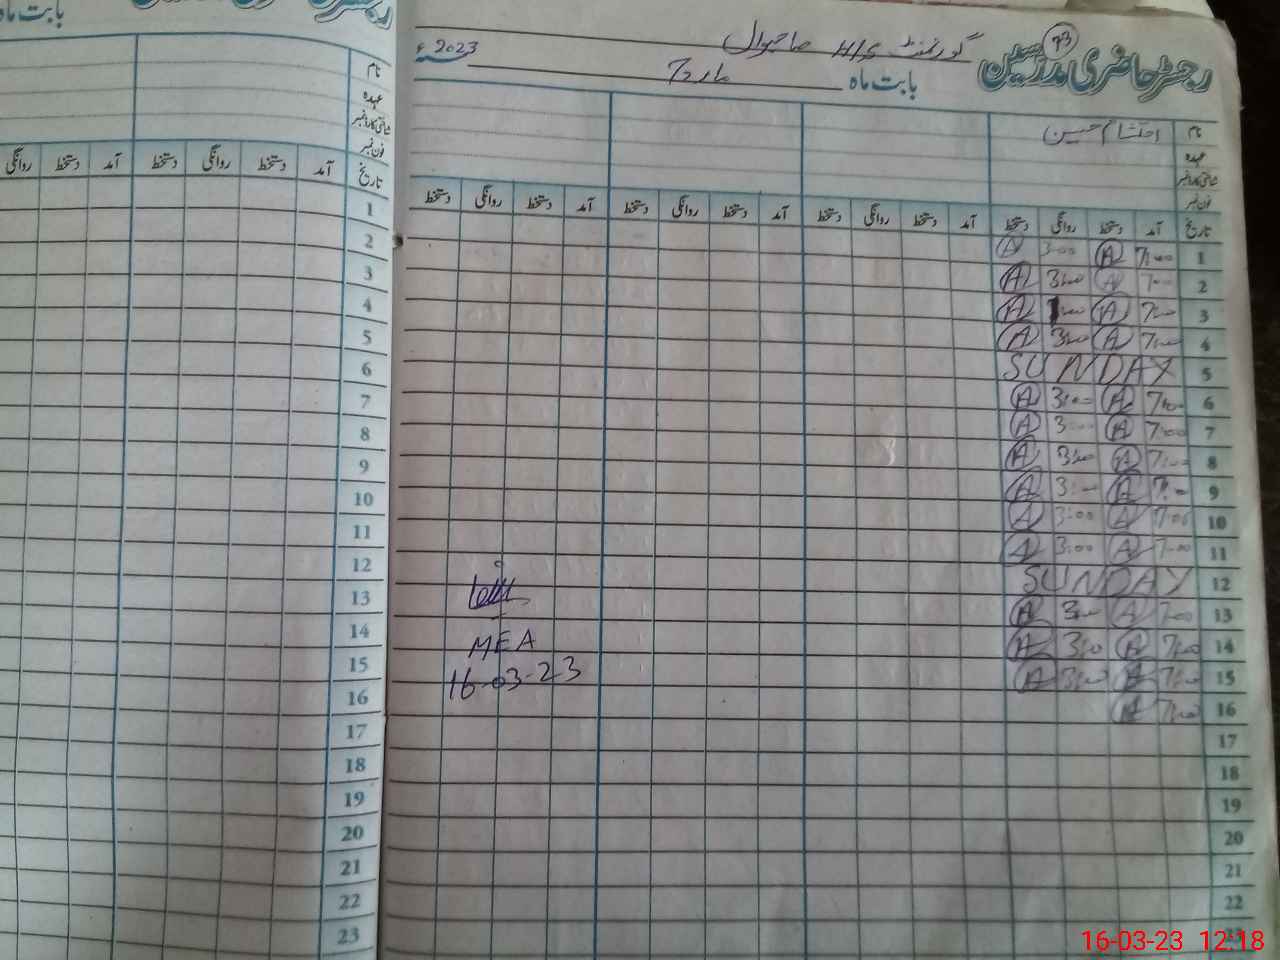 رجسٹر حاضری مدرسین
73
گورنمنٹ H/S ساہیوال
بابت ماہ مارچ 2023ء
نام احتشام حسین
عہدہ
شناختی کارڈ نمبر
فون نمبر
تاریخ آمد دستخط روانگی دستخط آمد دستخط روانگی دستخط آمد دستخط روانگی دستخط آمد دستخط روانگی دستخط
1 7:00 A 3:00 A
2 7:00 A 3:00 A
3 7:00 A 1:00 A
4 7:00 A 3:00 A
5 SUNDAY
6 7:00 A 3:00 A
7 7:00 A 3:00 A
8 7:00 A 3:00 A
9 7:00 A 3:00 A
10 7:00 A 3:00 A
11 7:00 A 3:00 A
12 SUNDAY
13 7:00 A 3:00 A
14 7:00 A 3:00 A
15 7:00 A 3:00 A
16 7:00 A
17
18
19
20
21
22
23
MEA
16-03-23
بابت ماہ
نام
عہدہ
شناختی کارڈ نمبر
فون نمبر
تاریخ آمد دستخط روانگی دستخط آمد دستخط روانگی
1
2
3
4
5
6
7
8
9
10
11
12
13
14
15
16
17
18
19
20
21
22
23
16-03-23 12:18